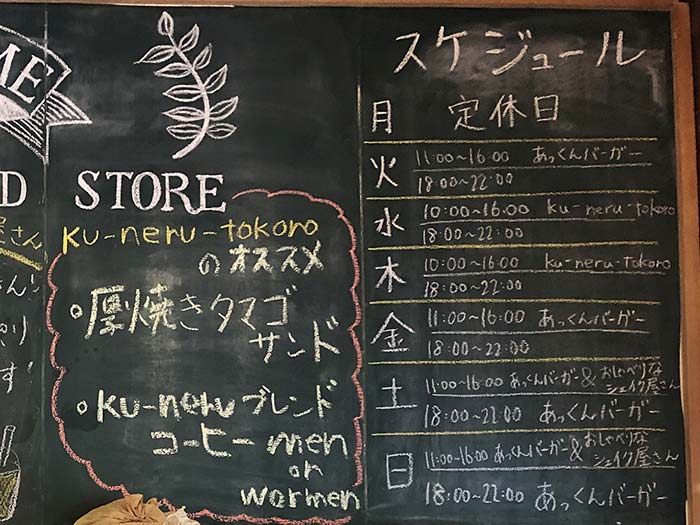 ME
D
屋さん
STORE
ku-neru-tokoro
のオススメ
・厚焼きタマゴ
サンド
・ku-neruブレンド
コーヒー men
or
wormen
スケジュール
月 定休日
火 11:00~16:00 あっくんバーガー
18:00~22:00
水 10:00~16:00 ku-neru-tokoro
18:00~22:00
木 10:00~16:00 ku-neru-tokoro
18:00~22:00
金 11:00~16:00 あっくんバーガー
18:00~22:00
土 11:00~16:00 あっくんバーガー&おしゃべりな
シェイク屋さん
18:00~22:00 あっくんバーガー
日 11:00~16:00 あっくんバーガー&おしゃべりな
シェイク屋さん
18:00~22:00 あっくんバーガー